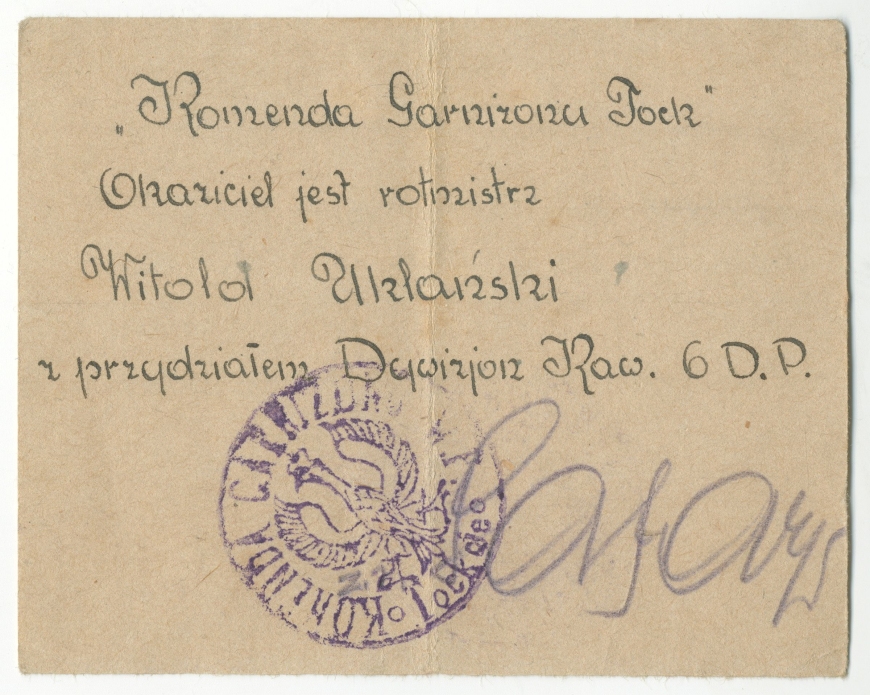 „Komenda Garnizonu Tock"
Okaziciel jest rotmistrz
Witold Uklański
z przydziałem Dywizjon Kaw. 6 D.P.
KOMENDA GARNIZONU
Tockoje